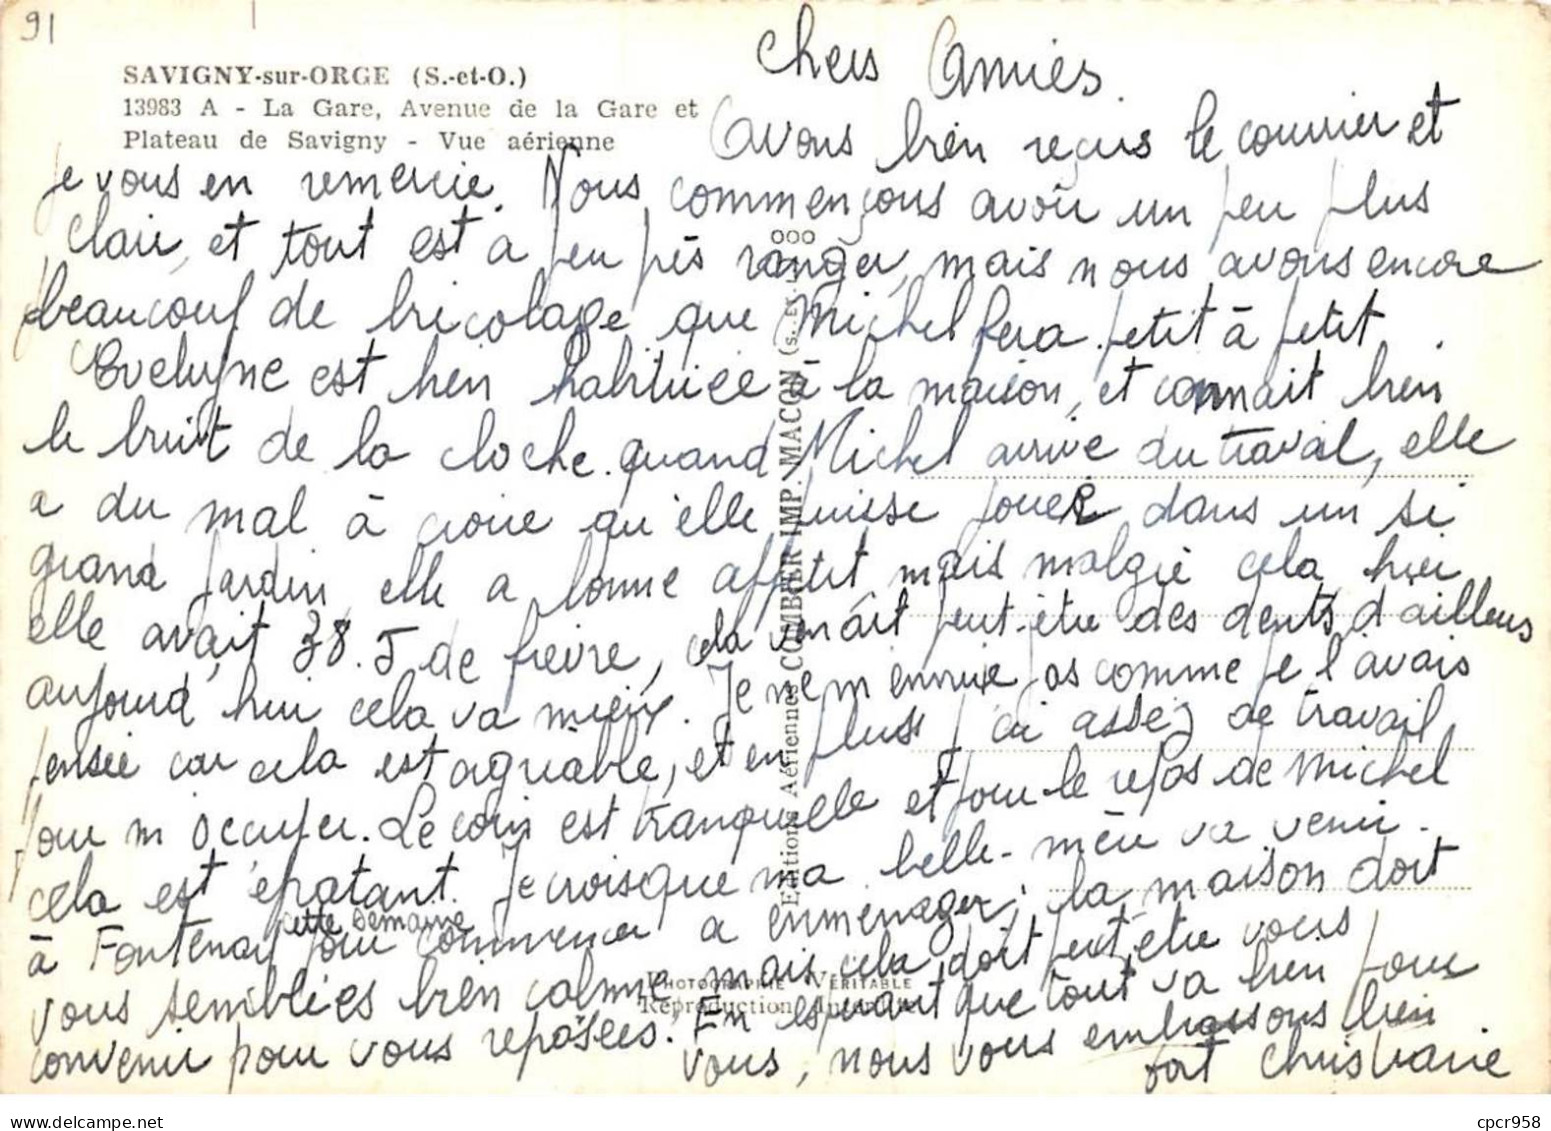 91
SAVIGNY-sur-ORGE (S.-et-O.)
13983 A - La Gare, Avenue de la Gare et
Plateau de Savigny - Vue aérienne
Chers Amies.
Avons bien reçus le courrier et
je vous en remercie. Nous commençons avoir un peu plus
clair, et tout est a peu près ranger, mais nous avons encore
beaucoup de bricolage que Michel fera petit à petit.
Evelyne est bien habituée à la maison, et connait bien
le bruit de la cloche quand Michel arrive du travail, elle
a du mal à croire qu'elle puisse jouer dans un si
grand jardin, elle a bonne appétit, mais malgré cela, hier
elle avait 38.5 de fievre, cela venait peut-être des dents, d'ailleurs
aujourd'hui cela va mieux. Je ne m'ennuie pas comme je l'avais
pensée car cela est agréable, et en pluss j'ai assez de travail
pour m'occuper. Le coin est tranquille et pour le repos de Michel
cela est épatant. Je crois que ma belle-mère va venir
à Fontenay cette semaine pour commencer a enmenager; la maison doit
vous semblées bien calme, mais cela doit peut-être vous
convenir pour vous reposées. En espérant que tout va bien pour
vous, nous vous embrassons bien
fort Christiane
Editions Aériennes COMBIER IMP. MACON (S.-ET-L.)
PHOTOGRAPHIE VÉRITABLE
Reproduction Interdite
cpcr958